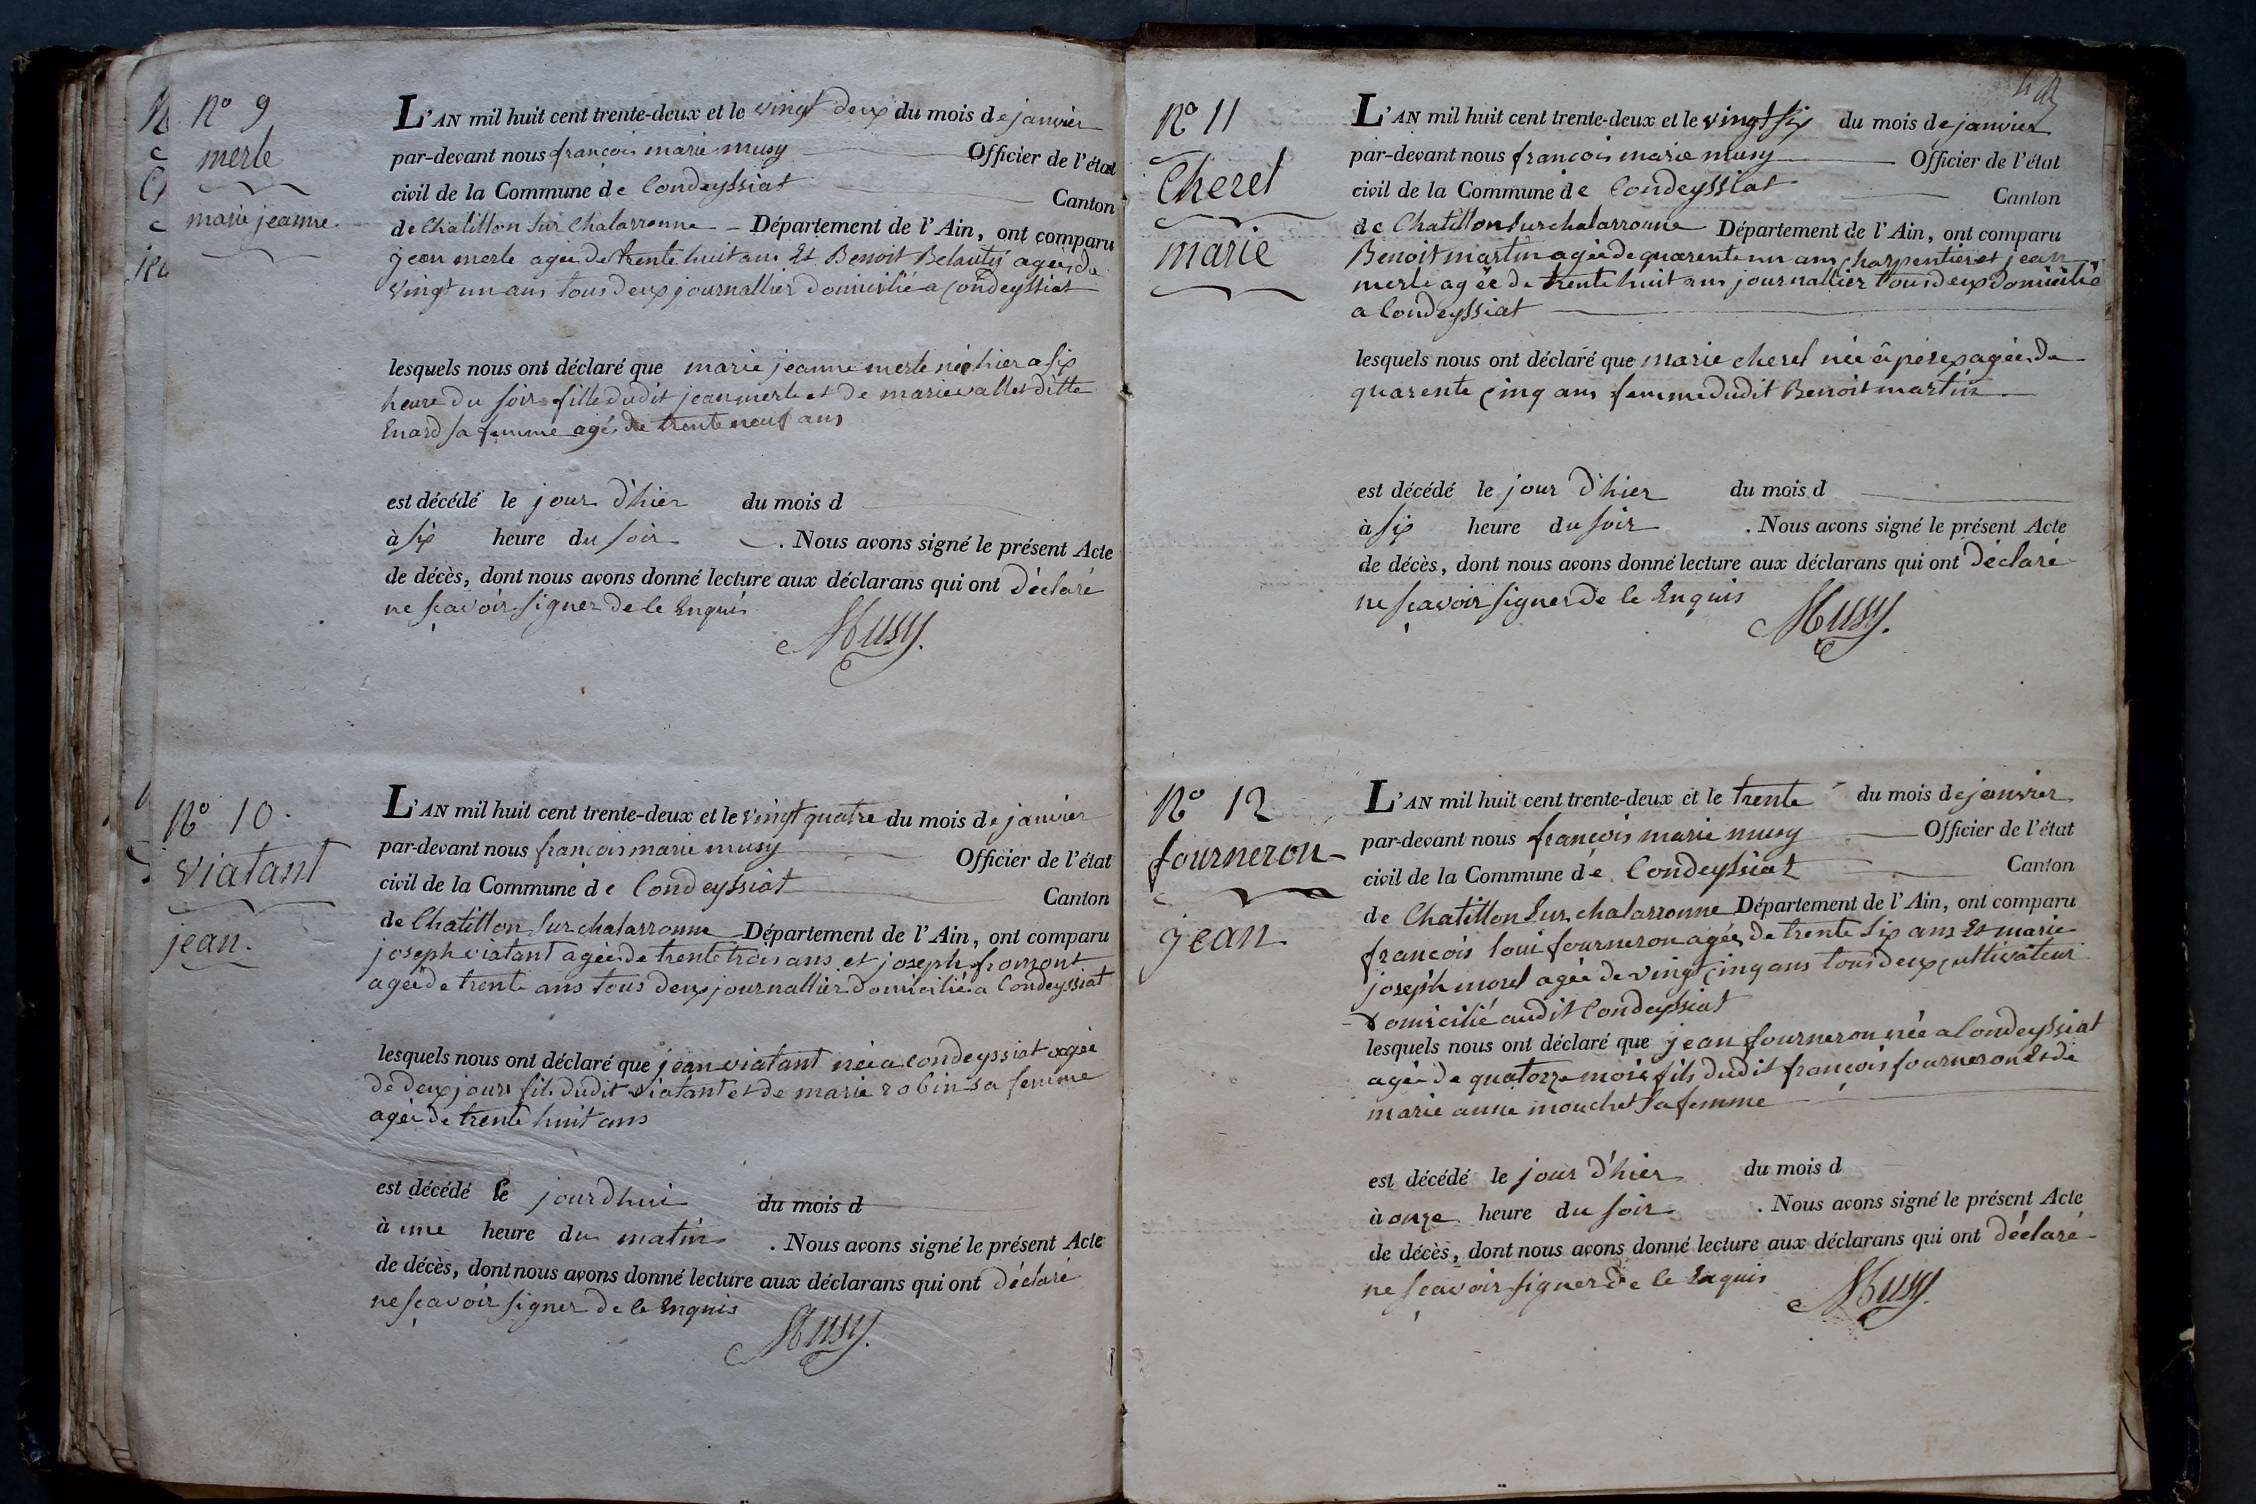 N° 9
merle
marie jeanne
L'AN mil huit cent trente-deux et le vingt deux du mois de janvier
par-devant nous francois marie musy Officier de l'état
civil de la Commune de Condeyssiat Canton
de Chatillon sur Chalarronne Département de l'Ain, ont comparu
jean merle agée de trente huit ans Et Benoit agée de
vingt un ans tous deux journallier domicilié a Condeyssiat
lesquels nous ont déclaré que marie jeanne merle née hier a six
heure du soir fille dudit jean merle et de marie vallet ditte
Enard sa femme agée de trente neuf ans
est décédé le jour d'hier du mois d
à six heure du soir . Nous avons signé le présent Acte
de décès, dont nous avons donné lecture aux déclarans qui ont déclaré
ne sçavoir signer de ce Enquis
Musy.
N° 10.
viatant
jean.
L'AN mil huit cent trente-deux et le vingt quatre du mois de janvier
par-devant nous francois marie musy Officier de l'état
civil de la Commune de Condeyssiat Canton
de Chatillon sur chalarronne Département de l'Ain, ont comparu
joseph viatant agée de trente trois ans et joseph fromont
agée de trente ans tous deux journallier domicilié a Condeyssiat
lesquels nous ont déclaré que jean viatant née a condeyssiat agée
de deux jours fils dudit viatant et de marie robin sa femme
agée de trente huit ans
est décédé le jourdhui du mois d
à une heure du matin . Nous avons signé le présent Acte
de décès, dont nous avons donné lecture aux déclarans qui ont déclaré
ne sçavoir signer de ce Enquis
Musy.
N° 11
Cheret
marie
L'AN mil huit cent trente-deux et le vingt six du mois de janvier
par-devant nous francois marie musy Officier de l'état
civil de la Commune de Condeyssiat Canton
de Chatillon sur chalarronne Département de l'Ain, ont comparu
Benoit martin agée de quarente un ans charpentier et jean
merle agée de trente huit ans journallier tous deux domicilié
a Condeyssiat
lesquels nous ont déclaré que marie cheret née à perex agée de
quarente cinq ans femme dudit Benoit martin
est décédé le jour d'hier du mois d
à six heure du soir . Nous avons signé le présent Acte
de décès, dont nous avons donné lecture aux déclarans qui ont déclaré
ne sçavoir signer de ce Enquis
Musy.
N° 12
fourneron
jean
L'AN mil huit cent trente-deux et le trente du mois de janvier
par-devant nous francois marie musy Officier de l'état
civil de la Commune de Condeyssiat Canton
de Chatillon sur chalarronne Département de l'Ain, ont comparu
francois loui fourneron agée de trente six ans Et marie
joseph morel agée de vingt cinq ans tous deux cultivateur
domicilié audit Condeyssiat
lesquels nous ont déclaré que jean fourneron née a Condeyssiat
agée de quatorze mois fils dudit francois fourneron Et de
marie anne mouchet sa femme
est décédé le jour d'hier du mois d
à onze heure du soir . Nous avons signé le présent Acte
de décès, dont nous avons donné lecture aux déclarans qui ont déclaré
ne sçavoir signer de ce Enquis
Musy.